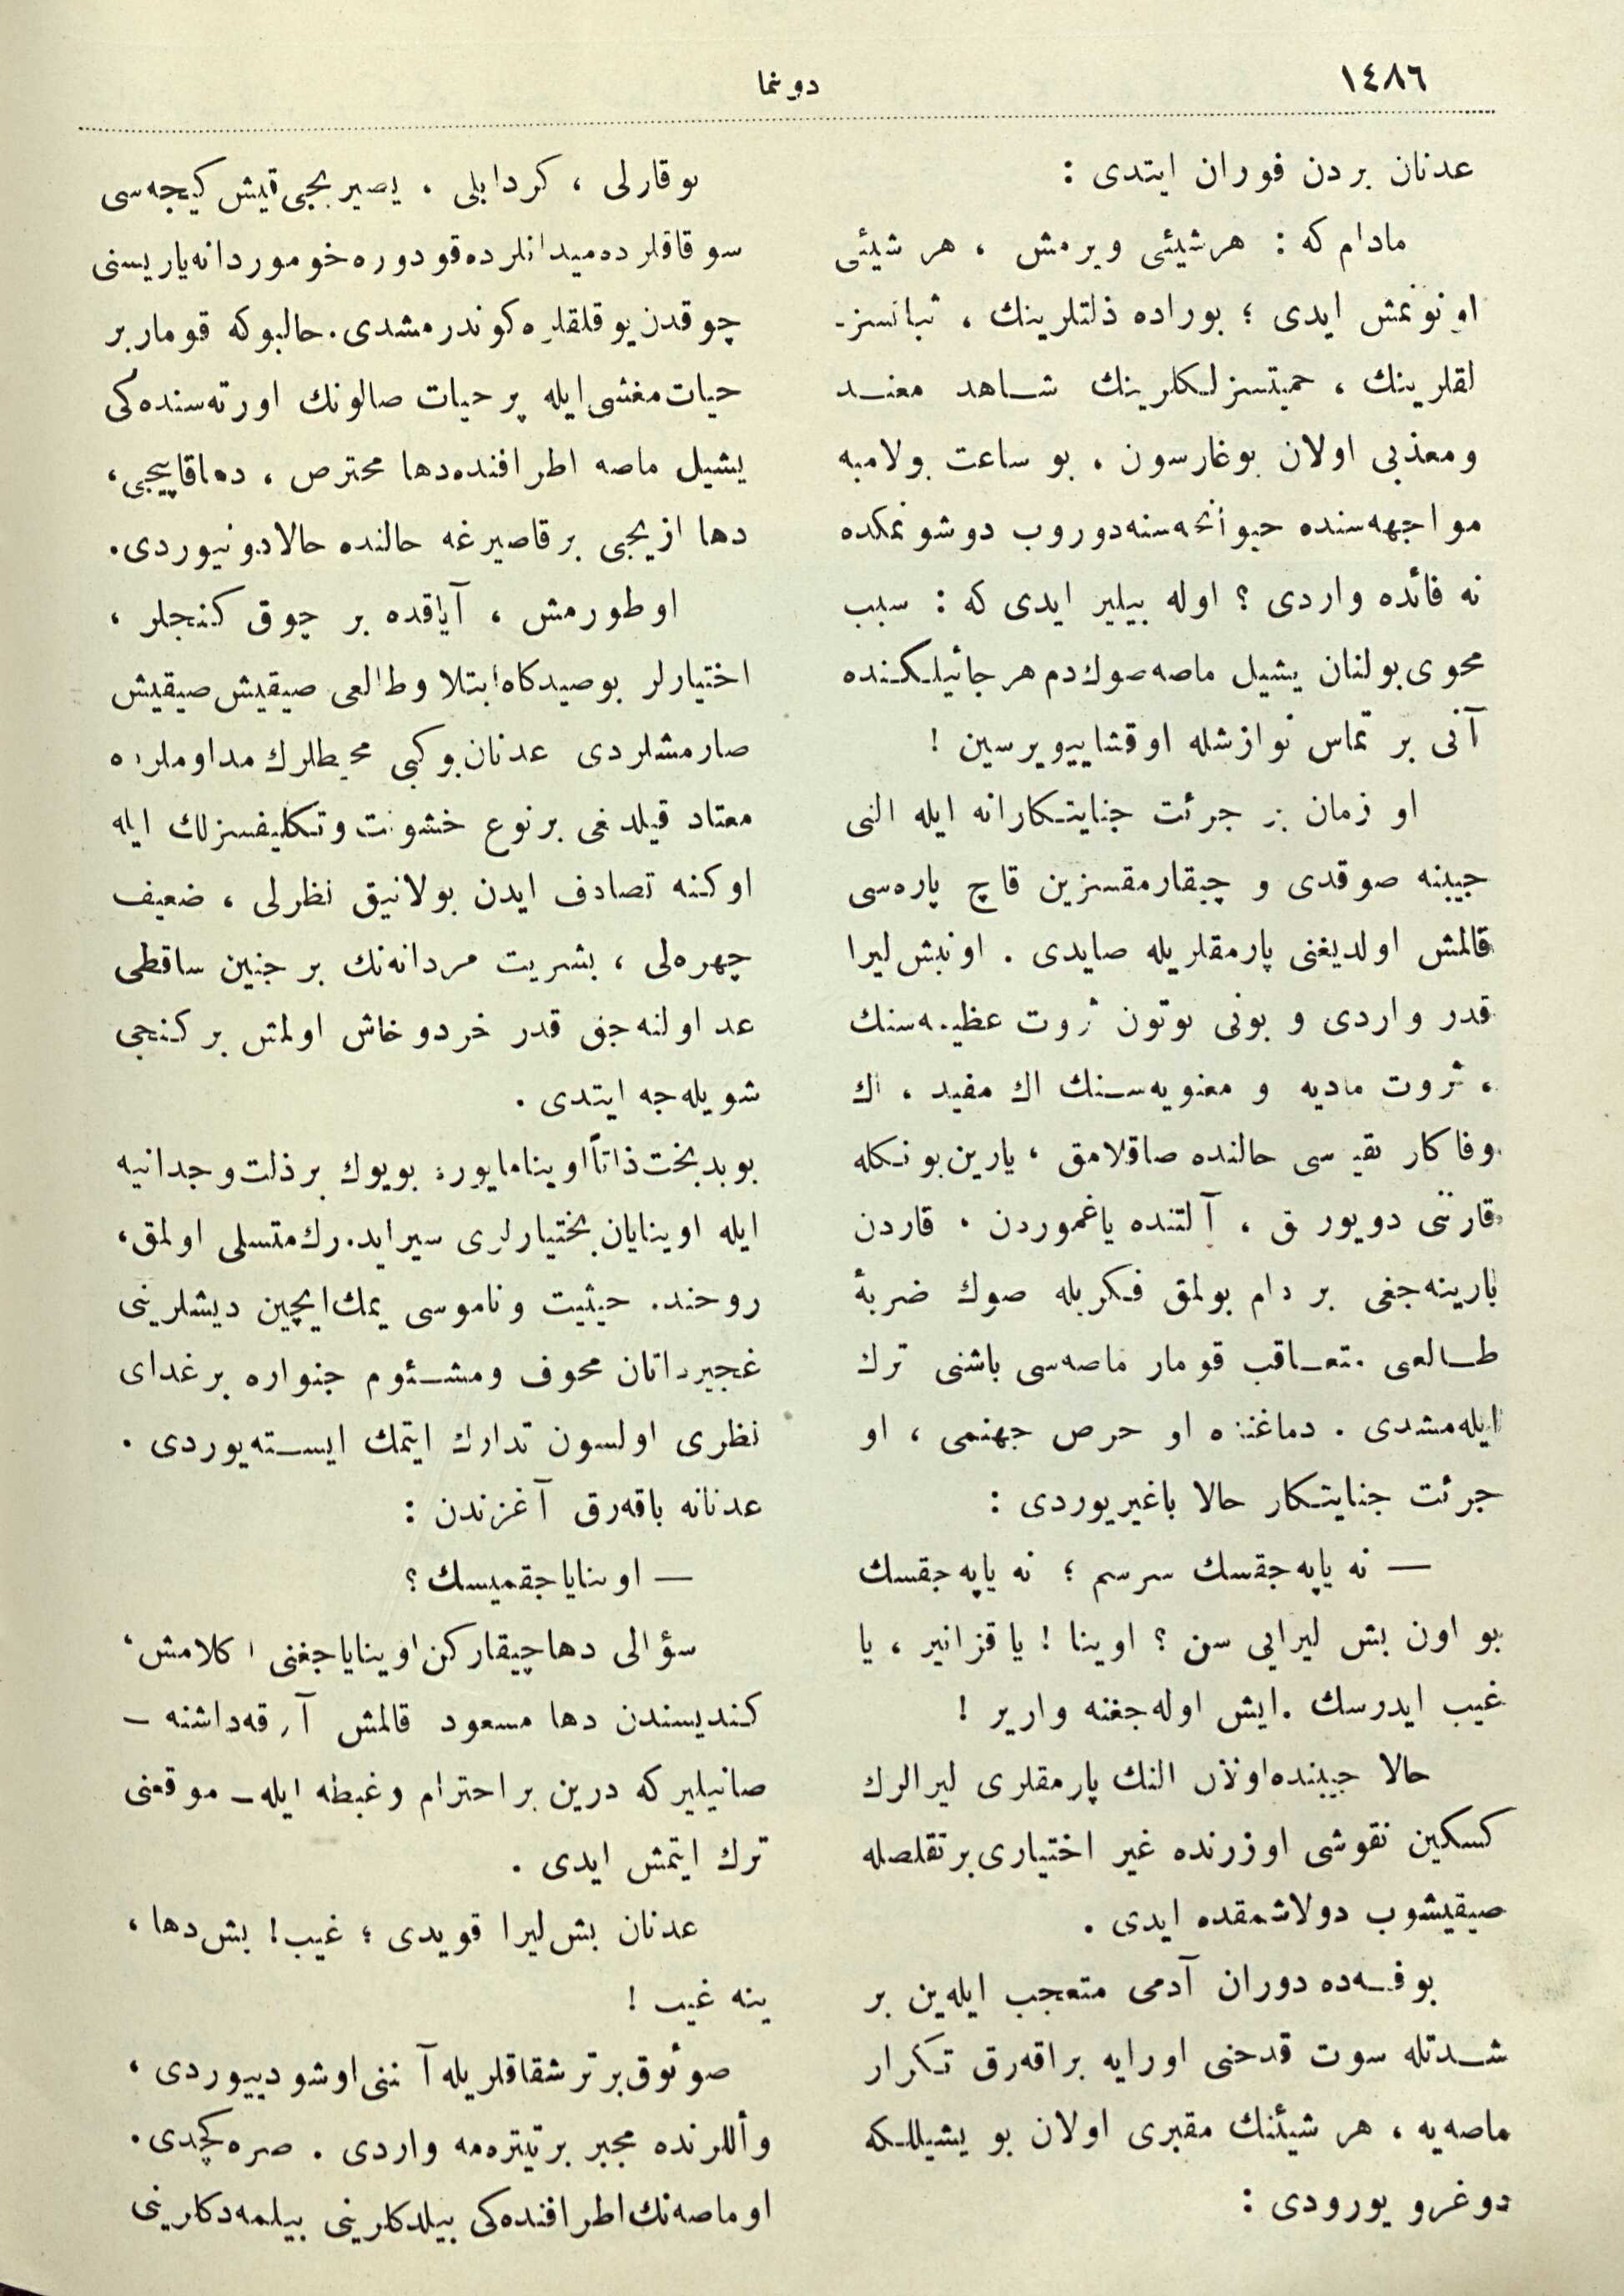 ١٤٨٦
دونما
عدنان بردن فوران ایتدی :
مادام که : هرشیئی ویرمش ، هر شیئی
اونوتمش ایدی ؛ بوراده ذلتلرینك ، ثباتسز-
لقلرینك ، حمیتسزلکلرینك شاهد معند
ومعذبی اولان بوغارسون ، بو ساعت ولامبه
مواجهه‌سنده دوروب دوشونمکده
نه فائده واردی ؟ اوله بیلیر ایدی که : سبب
محوی بولنان یشیل ماصه صوك دم هرجائیلکنده
آنی بر تماس نوازشله اوقشاییویرسین !
او زمان بر جرئت جنایتکارانه ایله النی
جیبنه صوقدی و چیقارمقسزین قاچ پاره‌سی
قالمش اولدیغنی پارمقلریله صایدی . اونبش لیرا
قدر واردی و بونی بوتون ثروت عظیمه‌سنك
، ثروت مادیه و معنویه‌سنك اك مفید ، اك
وفاکار بقیه‌سی حالنده صاقلامق ، یارین بونکله
قارننی دویورمق ، آلتنده یاغموردن ، قاردن
بارینه‌جغی بر دام بولمق فکریله صوك ضربهٔ
طالعی متعاقب قومار ماصه‌سی باشنی ترك
ایله‌مشدی . دماغنده او حرص جهنمی ، او
جرئت جنایتکار حالا باغیریوردی :
— نه یاپه‌جقسك سرسم ؛ نه یاپه‌جقسك
بو اون بش لیرایی سن ؟ اوینا ! یا قزانیر ، یا
غیب ایدرسك . ایش اوله‌جغنه واریر !
حالا جیبنده اولان النك پارمقلری لیرالرك
کسکین نقوشی اوزرنده غیر اختیاری برتقلصله
صیقیشوب دولاشمقده ایدی .
بوفه‌ده دوران آدمی متعجب ایله‌ین بر
شدتله سوت قدحنی اورایه براقه‌رق تکرار
ماصه‌یه ، هر شیئنك مقبری اولان بو یشیللکه
دوغرو یورودی :
بوقارلی ، کردابلی ، یصیریجی قیش کیجه‌سی
سوقاقلرده میدانلرده قودوره خوموردانه یاریسنی
چوقدن یوقلقلره کوندرمشدی . حالبوکه قومار بر
حیات مغشی ایله پرحیات صالونك اورته‌سنده‌کی
یشیل ماصه اطرافنده دها محترص ، دها قاپیجی ،
دها ازیجی بر قاصیرغه حالنده حالا دونیوردی .
اوطورمش ، آیاقده بر چوق کنجلر ،
اختیارلر بوصیدکاه ابتلا وطالعی صیقیش صیقیش
صارمشلردی عدنان بوکبی محیطلرك مداوملرده
معتاد قیلدغی برنوع خشونت وتکلیفسزلك ایله
اوکنه تصادف ایدن بولانیق نظرلی ، ضعیف
چهره‌لی ، بشریت مردانه‌نك بر جنین ساقطی
عد اولنه‌جق قدر خردوخاش اولمش بر کنجی
شویله‌جه ایتدی .
بوبدبخت ذاتاً اوینامایور ، بویوك برذلت وجدانیه
ایله اوینایان بختیارلری سیر ایده‌رك متسلی اولمق ،
روحنده حیثیت وناموسی یمك ایچین دیشلرینی
غجیرداتان مخوف ومشئوم جنواره بر غدای
نظری اولسون تدارك ایتمك ایسته‌یوردی .
عدنانه باقه‌رق آغزندن :
— اوینایاجقمیسك ؟
سؤالی دها چیقارکن اوینایاجغنی اکلامش ،
کندیسندن دها مسعود قالمش آرقه‌داشنه —
صانیلیر که درین بر احترام وغبطه ایله — موقعنی
ترك ایتمش ایدی .
عدنان بش لیرا قویدی ؛ غیب ! بش دها ،
ینه غیب !
صوئوق بر تر شقاقلریله آلننی اوشودییوردی ،
وأللرنده مجبر برتیتره‌مه واردی . صره کچدی .
اوماصه‌نك اطرافنده‌کی بیلدکلرینی بیلمه‌دکلرینی